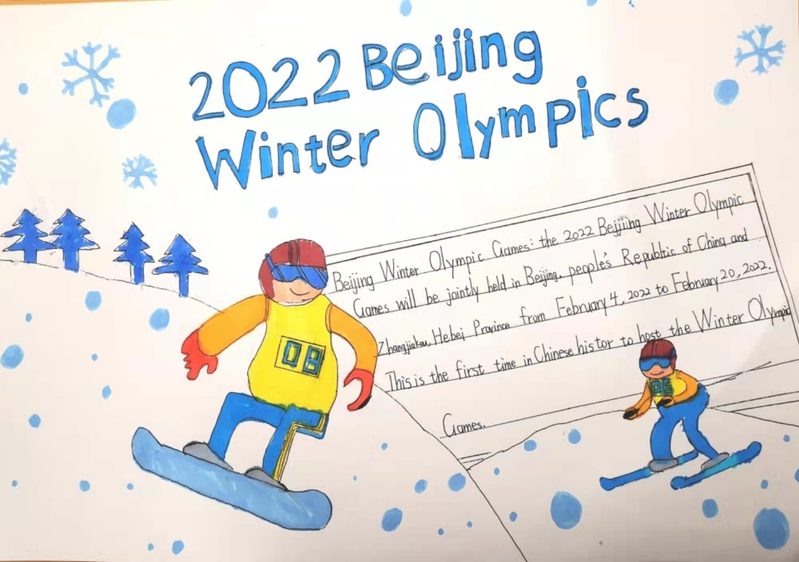 2022 Beijing
Winter Olympics
Beijing Winter Olympic Games: the 2022 Beijjing Winter Olympic
Games will be jointly held in Beijing, people's Republic of China and
Zhangjiakou, Hebei Province from February 4, 2022 to February 20, 2022.
This is the first time in Chinese histor to host the Winter Olympic
Games.
08
06